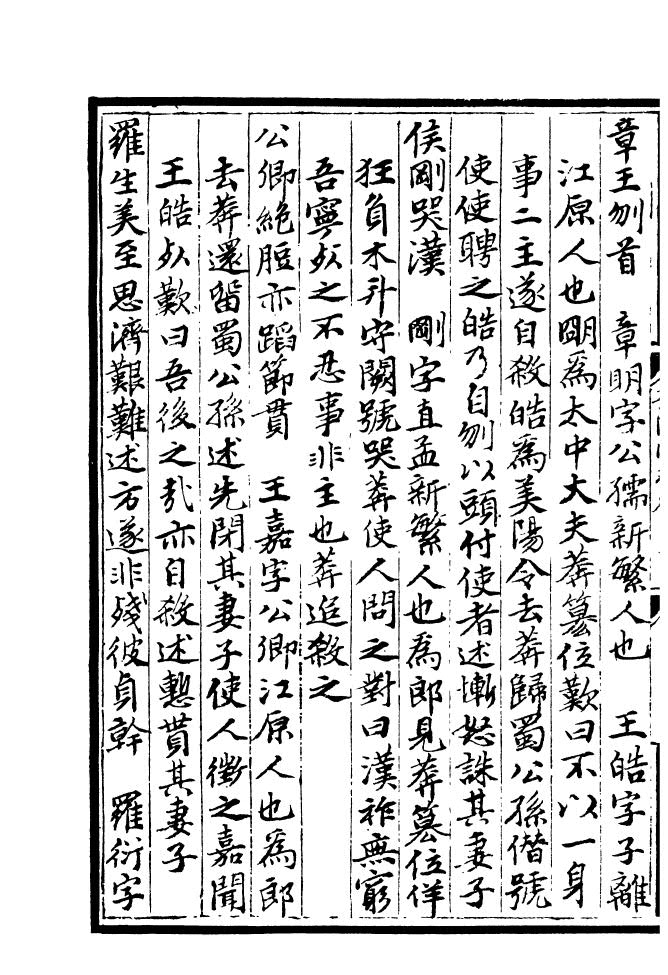 章王刎首　章明字公孺新繁人也　王皓字子離
江原人也明爲太中大夫莽簒位歎曰不以一身
事二主遂自殺皓爲美陽令去莽歸蜀公孫僭號
使使聘之皓乃自刎以頭付使者述慚怒誅其妻子
侯剛哭漢　剛字直孟新繁人也爲郎見莽簒位佯
狂負木斗守闕號哭莽使人問之對曰漢祚無窮
吾寧死之不忍事非主也莽追殺之
公卿絶脰亦蹈節貫　王嘉字公卿江原人也爲郎
去莽還留蜀公孫述先閉其妻子使人徵之嘉聞
王皓死歎曰吾後之㢤亦自殺述慙貰其妻子
羅生美至思濟艱難述方遂非殘彼貞幹　羅衍字